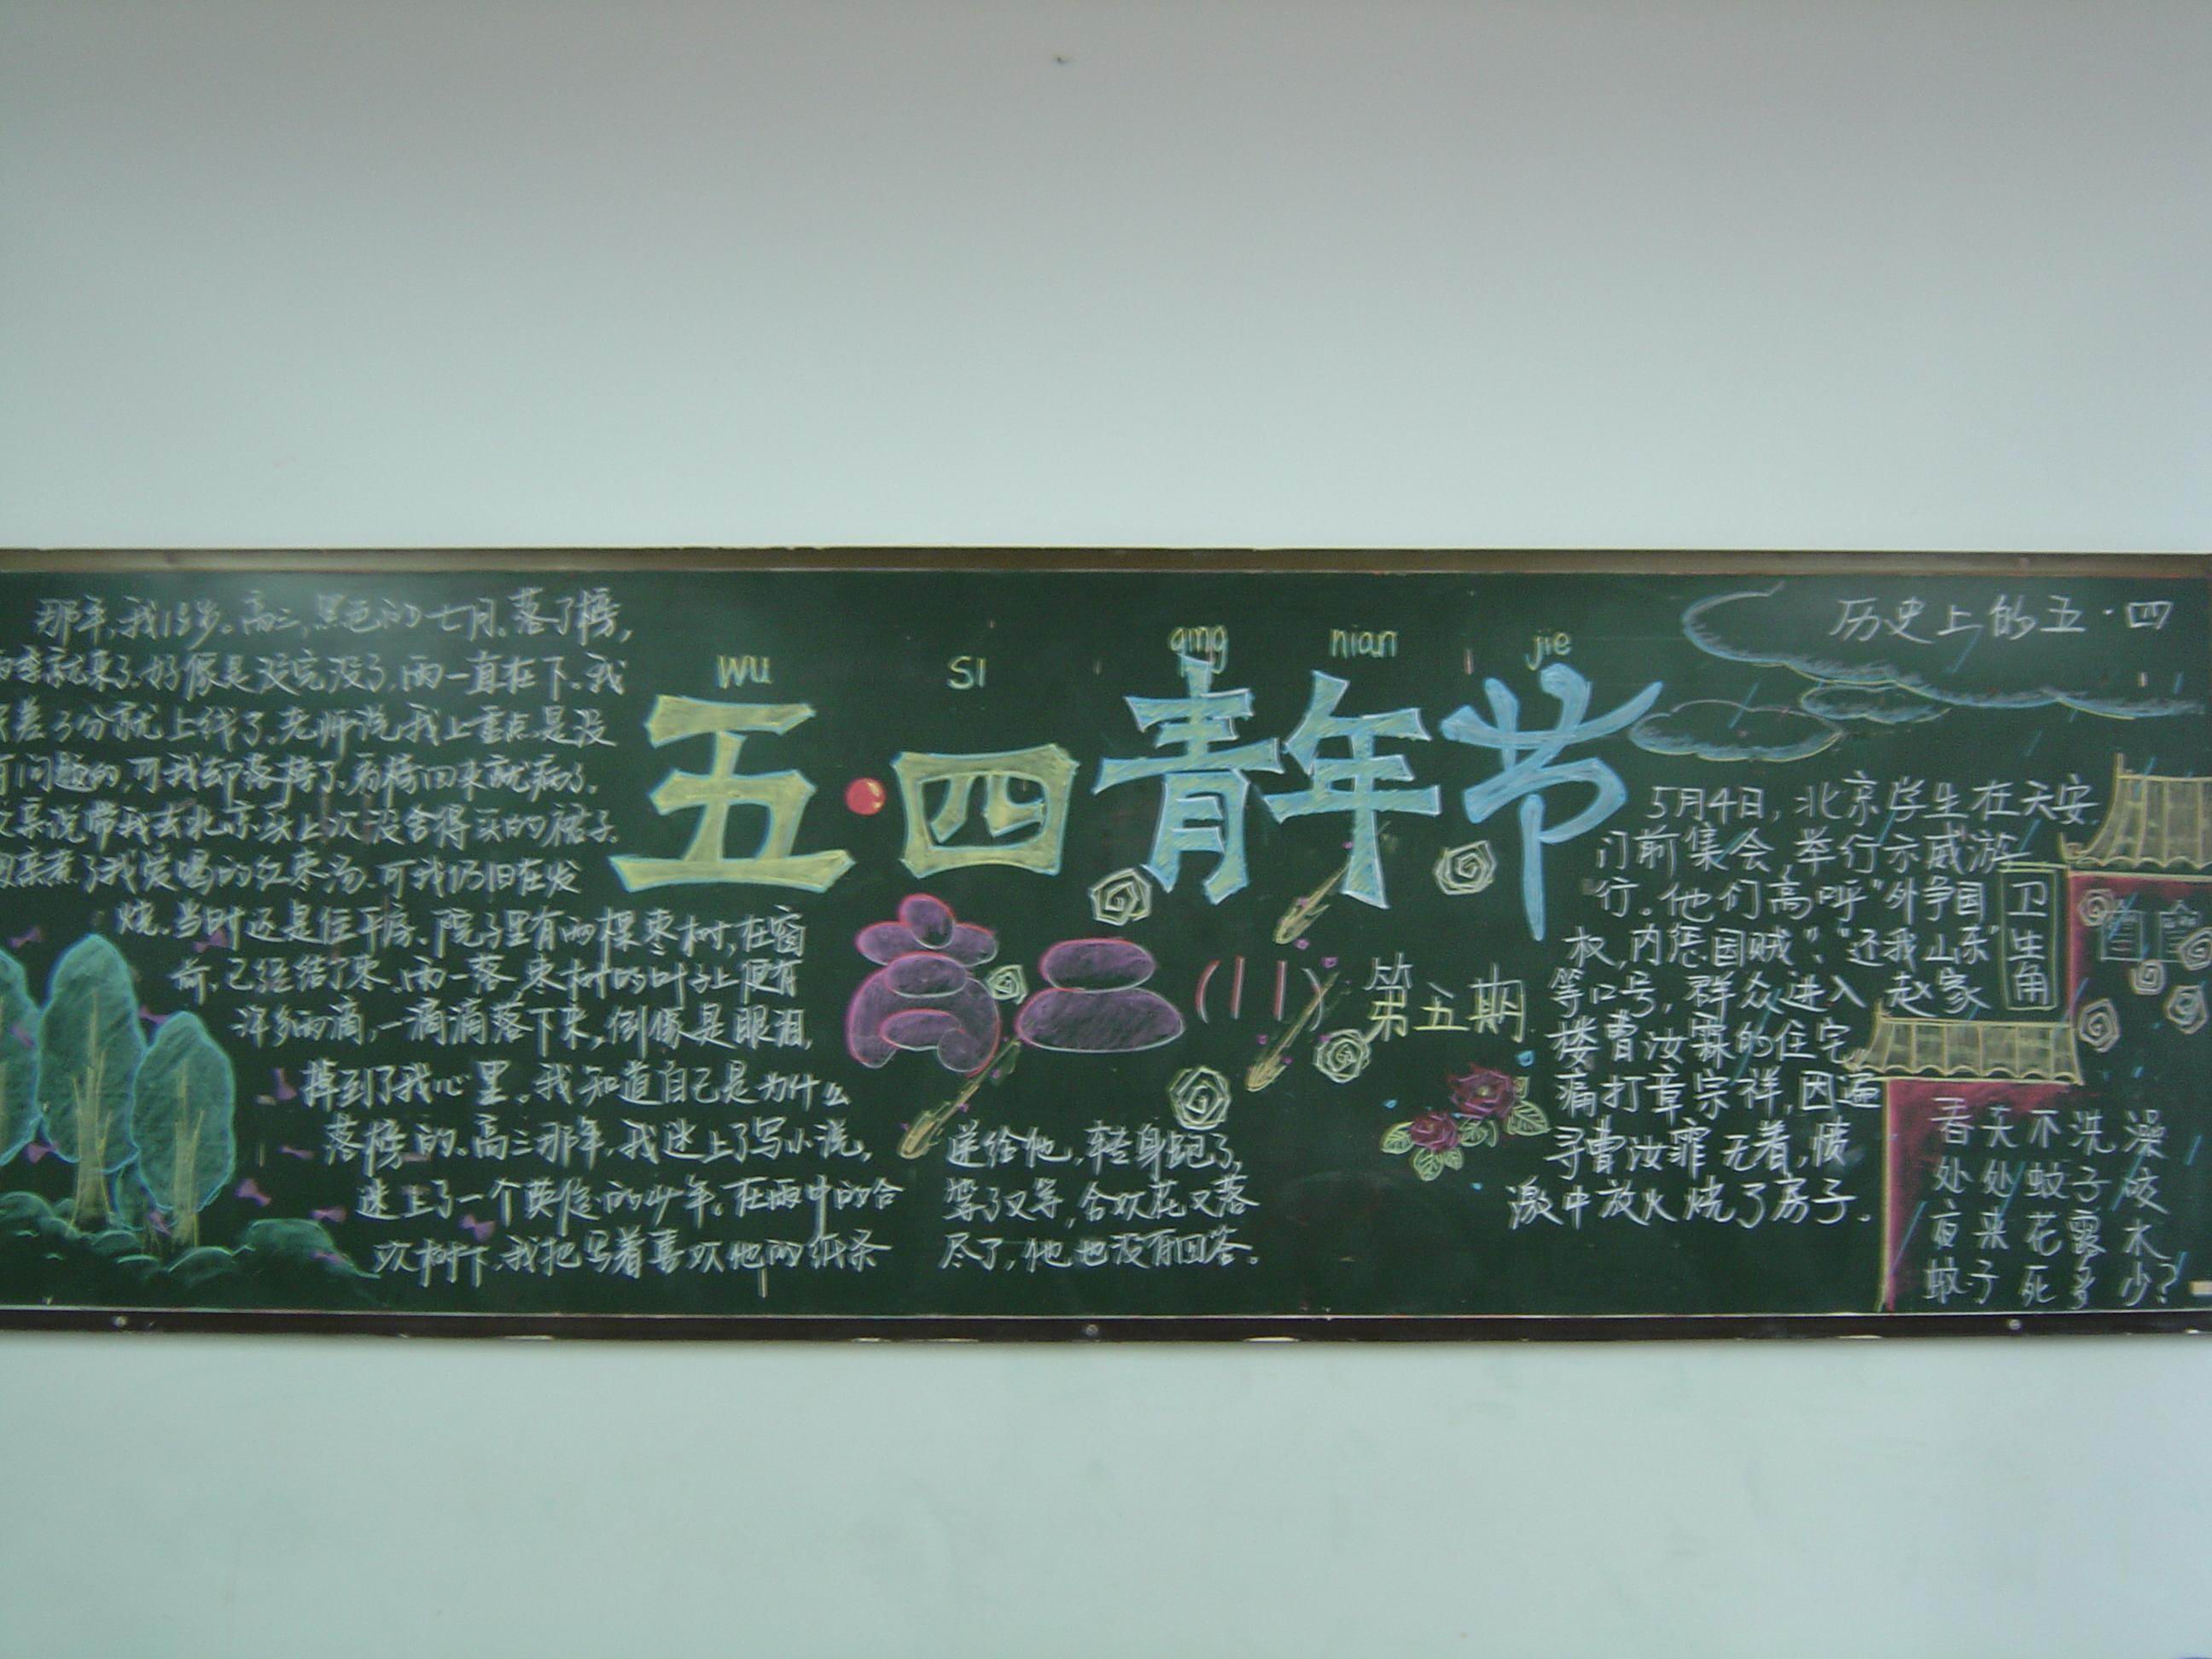 那年,我18岁。高三,黑色的七月,落了榜,
雨季就来了.好像是没完没了,雨一直在下.我
差了分就上线了.老师说,我上重点是没
有问题的,可我却落榜了.看榜回来就病了.
父亲说带我去北京,买上次没舍得买的裙子.
母亲煮了我爱喝的红枣汤.可我仍旧在发
烧.当时还是住平房.院子里有两棵枣树,在窗
前.已经结了枣.雨一落枣树的叶子上便有
许多雨滴,一滴滴落下来,倒像是眼泪,
掉到了我心里。我知道自己是为什么
落榜的.高三那年,我迷上了写小说,
迷上了一个英俊的少年。在雨中的合
欢树下,我把写着喜欢他的纸条
递给他,转身跑了,
等了又等,合欢花又落
尽了,他也没有回答。
wu si qing nian jie
五·四青年节
高二(11)第五期
历史上的五·四
5月4日,北京学生在天安
门前集会,举行示威游
行。他们高呼"外争国
权,内惩国贼","还我山东"
等口号,群众进入赵家
楼曹汝霖的住宅,
痛打章宗祥,因遍
寻曹汝霏无着,愤
激中放火烧了房子.
卫生角
春天不洗澡
处处蚊子咬
夜来花露水
蚊子死多少?